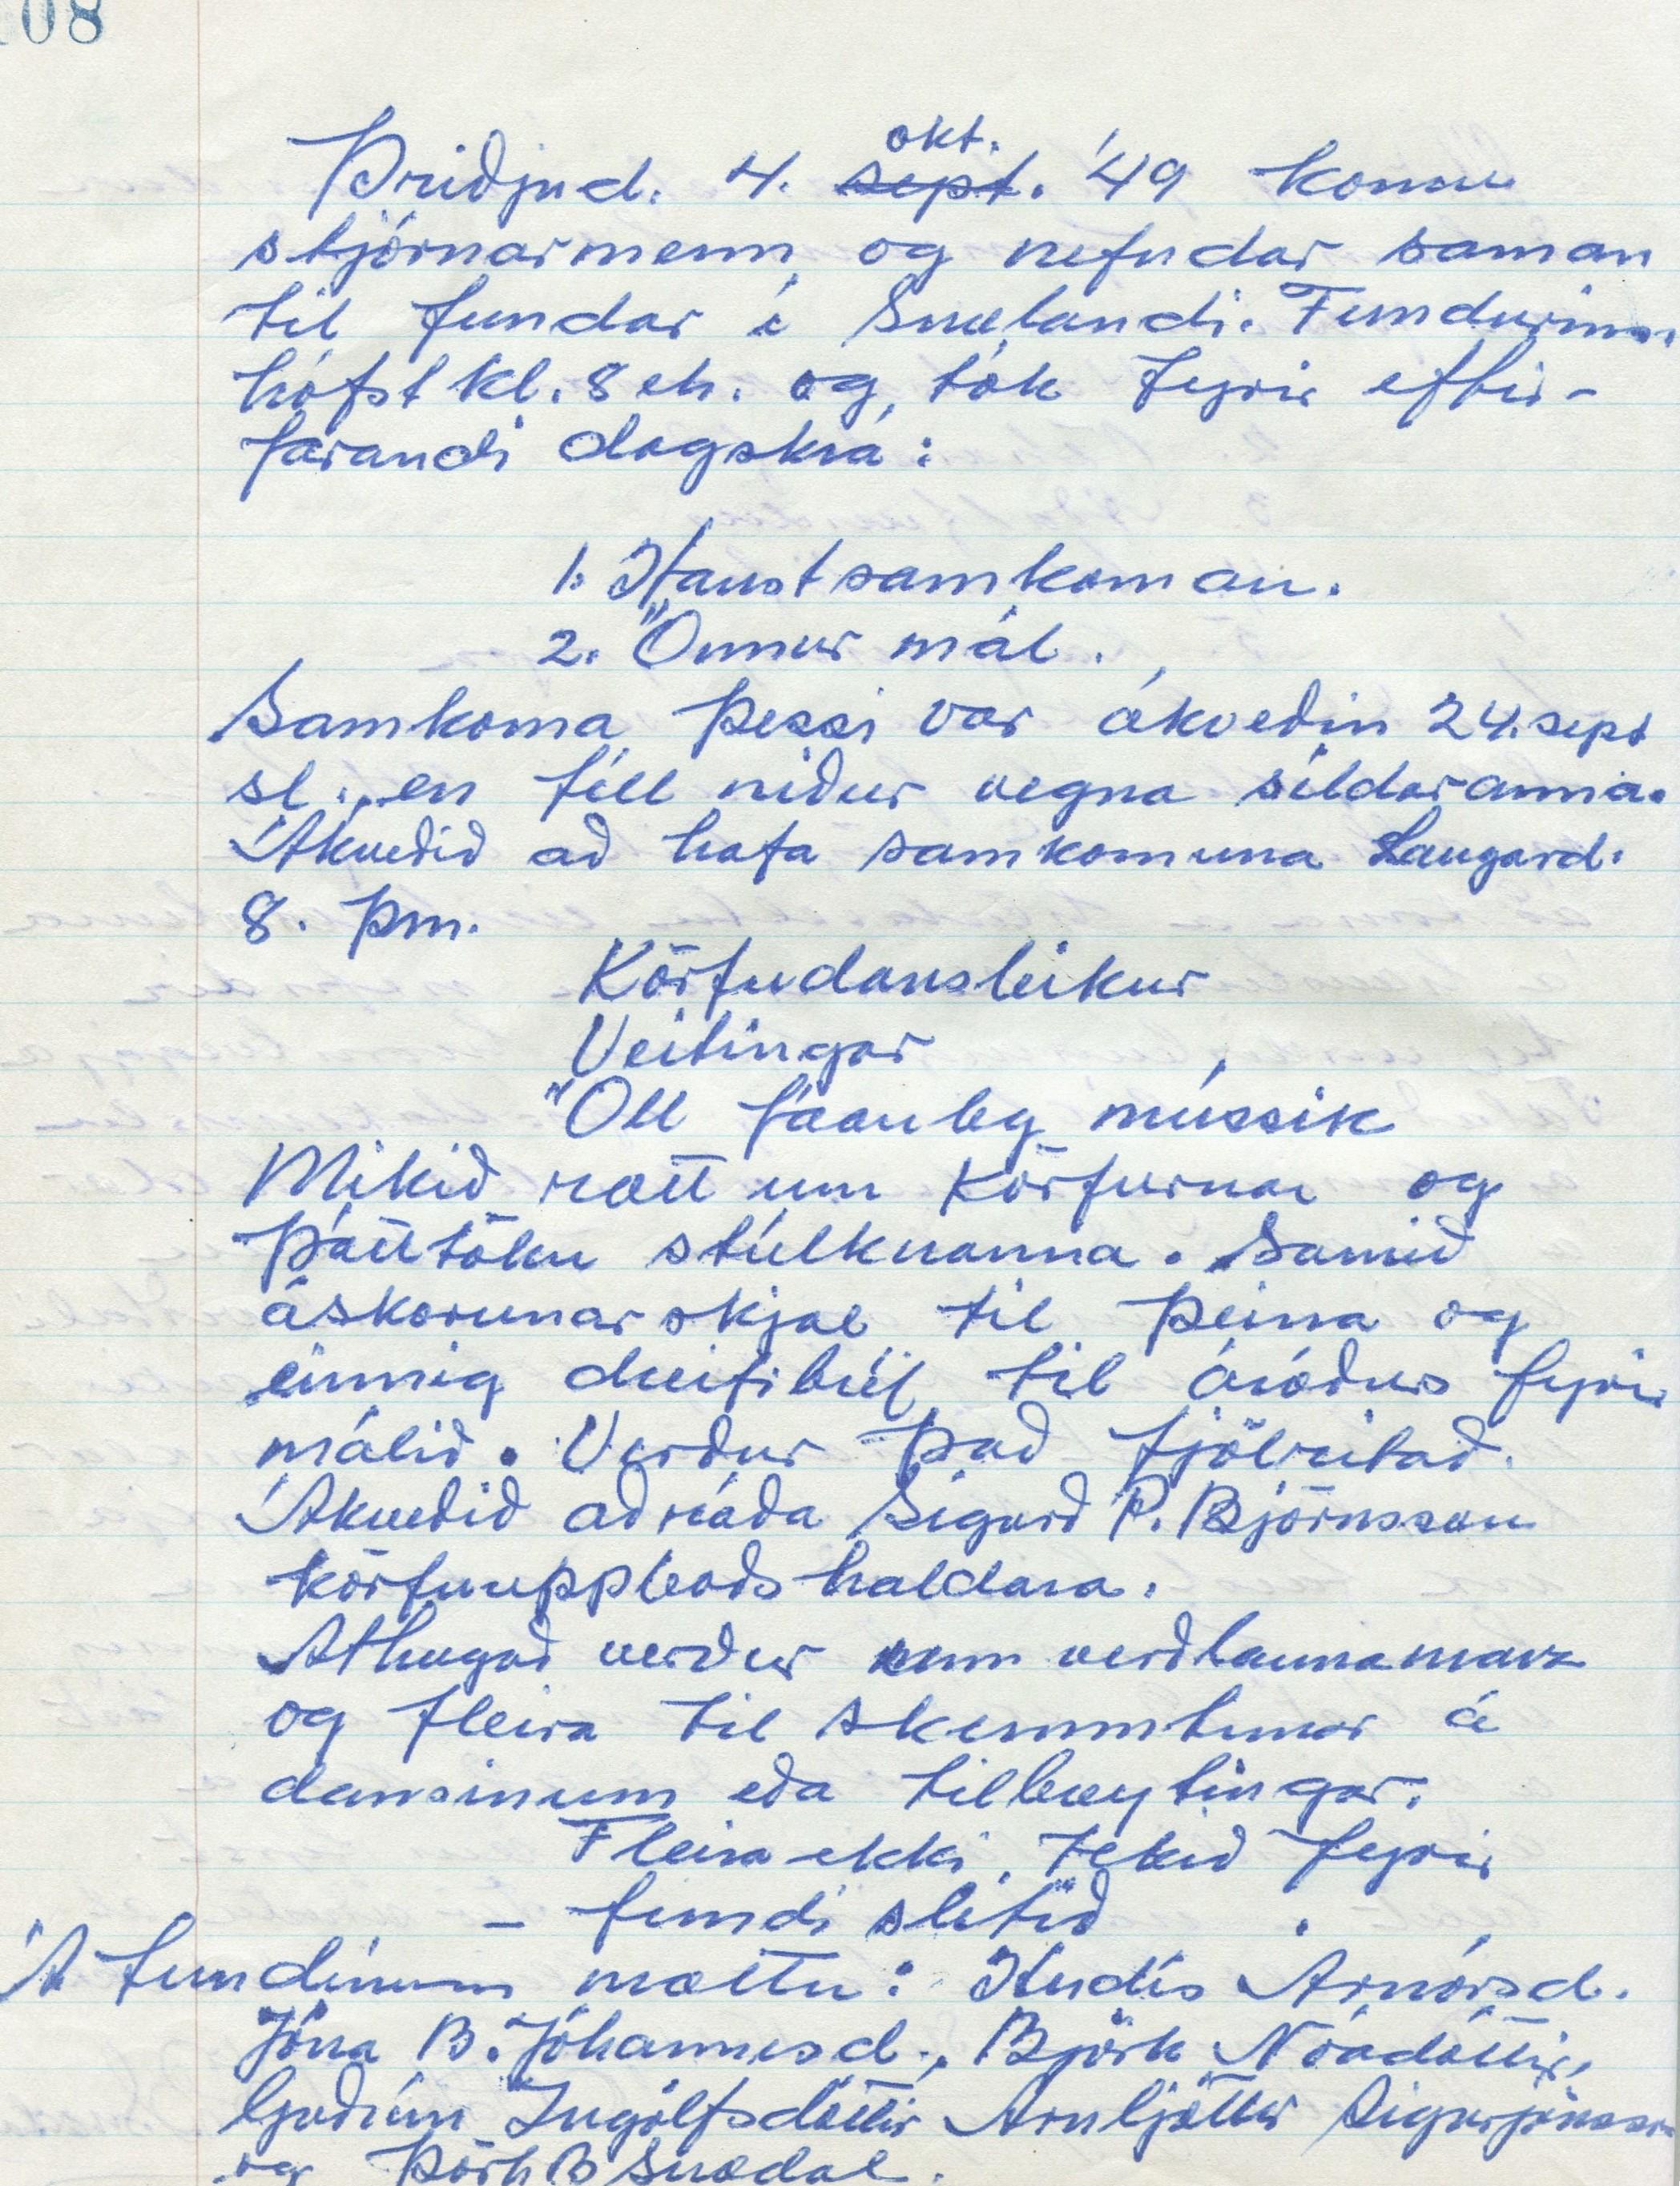 08
Þriðjud. 4. sept. okt. '49 komu
stjórnarmenn og nefndar saman
til fundar í Snælandi. Fundurinn
hófst kl. 8 eh. og tók fyrir eftir-
farandi dagskrá:
1. Haustsamkoman.
2. Önnur mál.
Samkoma þessi var ákveðin 24. sept
sl., en féll niður vegna síldaranna.
Ákveðið að hafa samkomuna Laugard.
8. þm.
Körfudansleikur
Veitingar
Öll fáanleg mússík
Mikið rætt um körfurnar og
þátttöku stúlknanna. Samið
áskorunarskjal til þeirra og
einnig dreifibréf til áróðurs fyrir
málið. Verður það fjölritað.
Ákveðið að ráða Sigurð P. Björnsson
körfuuppboðshaldara.
Athugað verður um verðlaunamarz
og fleira til skemmtunar á
dansinum eða tilbreytingar.
Fleira ekki tekið fyrir
- fundi slitið
Á fundinum mættu: Herdís Arnórsd.
Jóna B. Jóhannesd., Björk Nóadóttir,
Guðrún Ingólfsdóttir Arnljótur Sigurjónsson
og Þórh B Snædal.